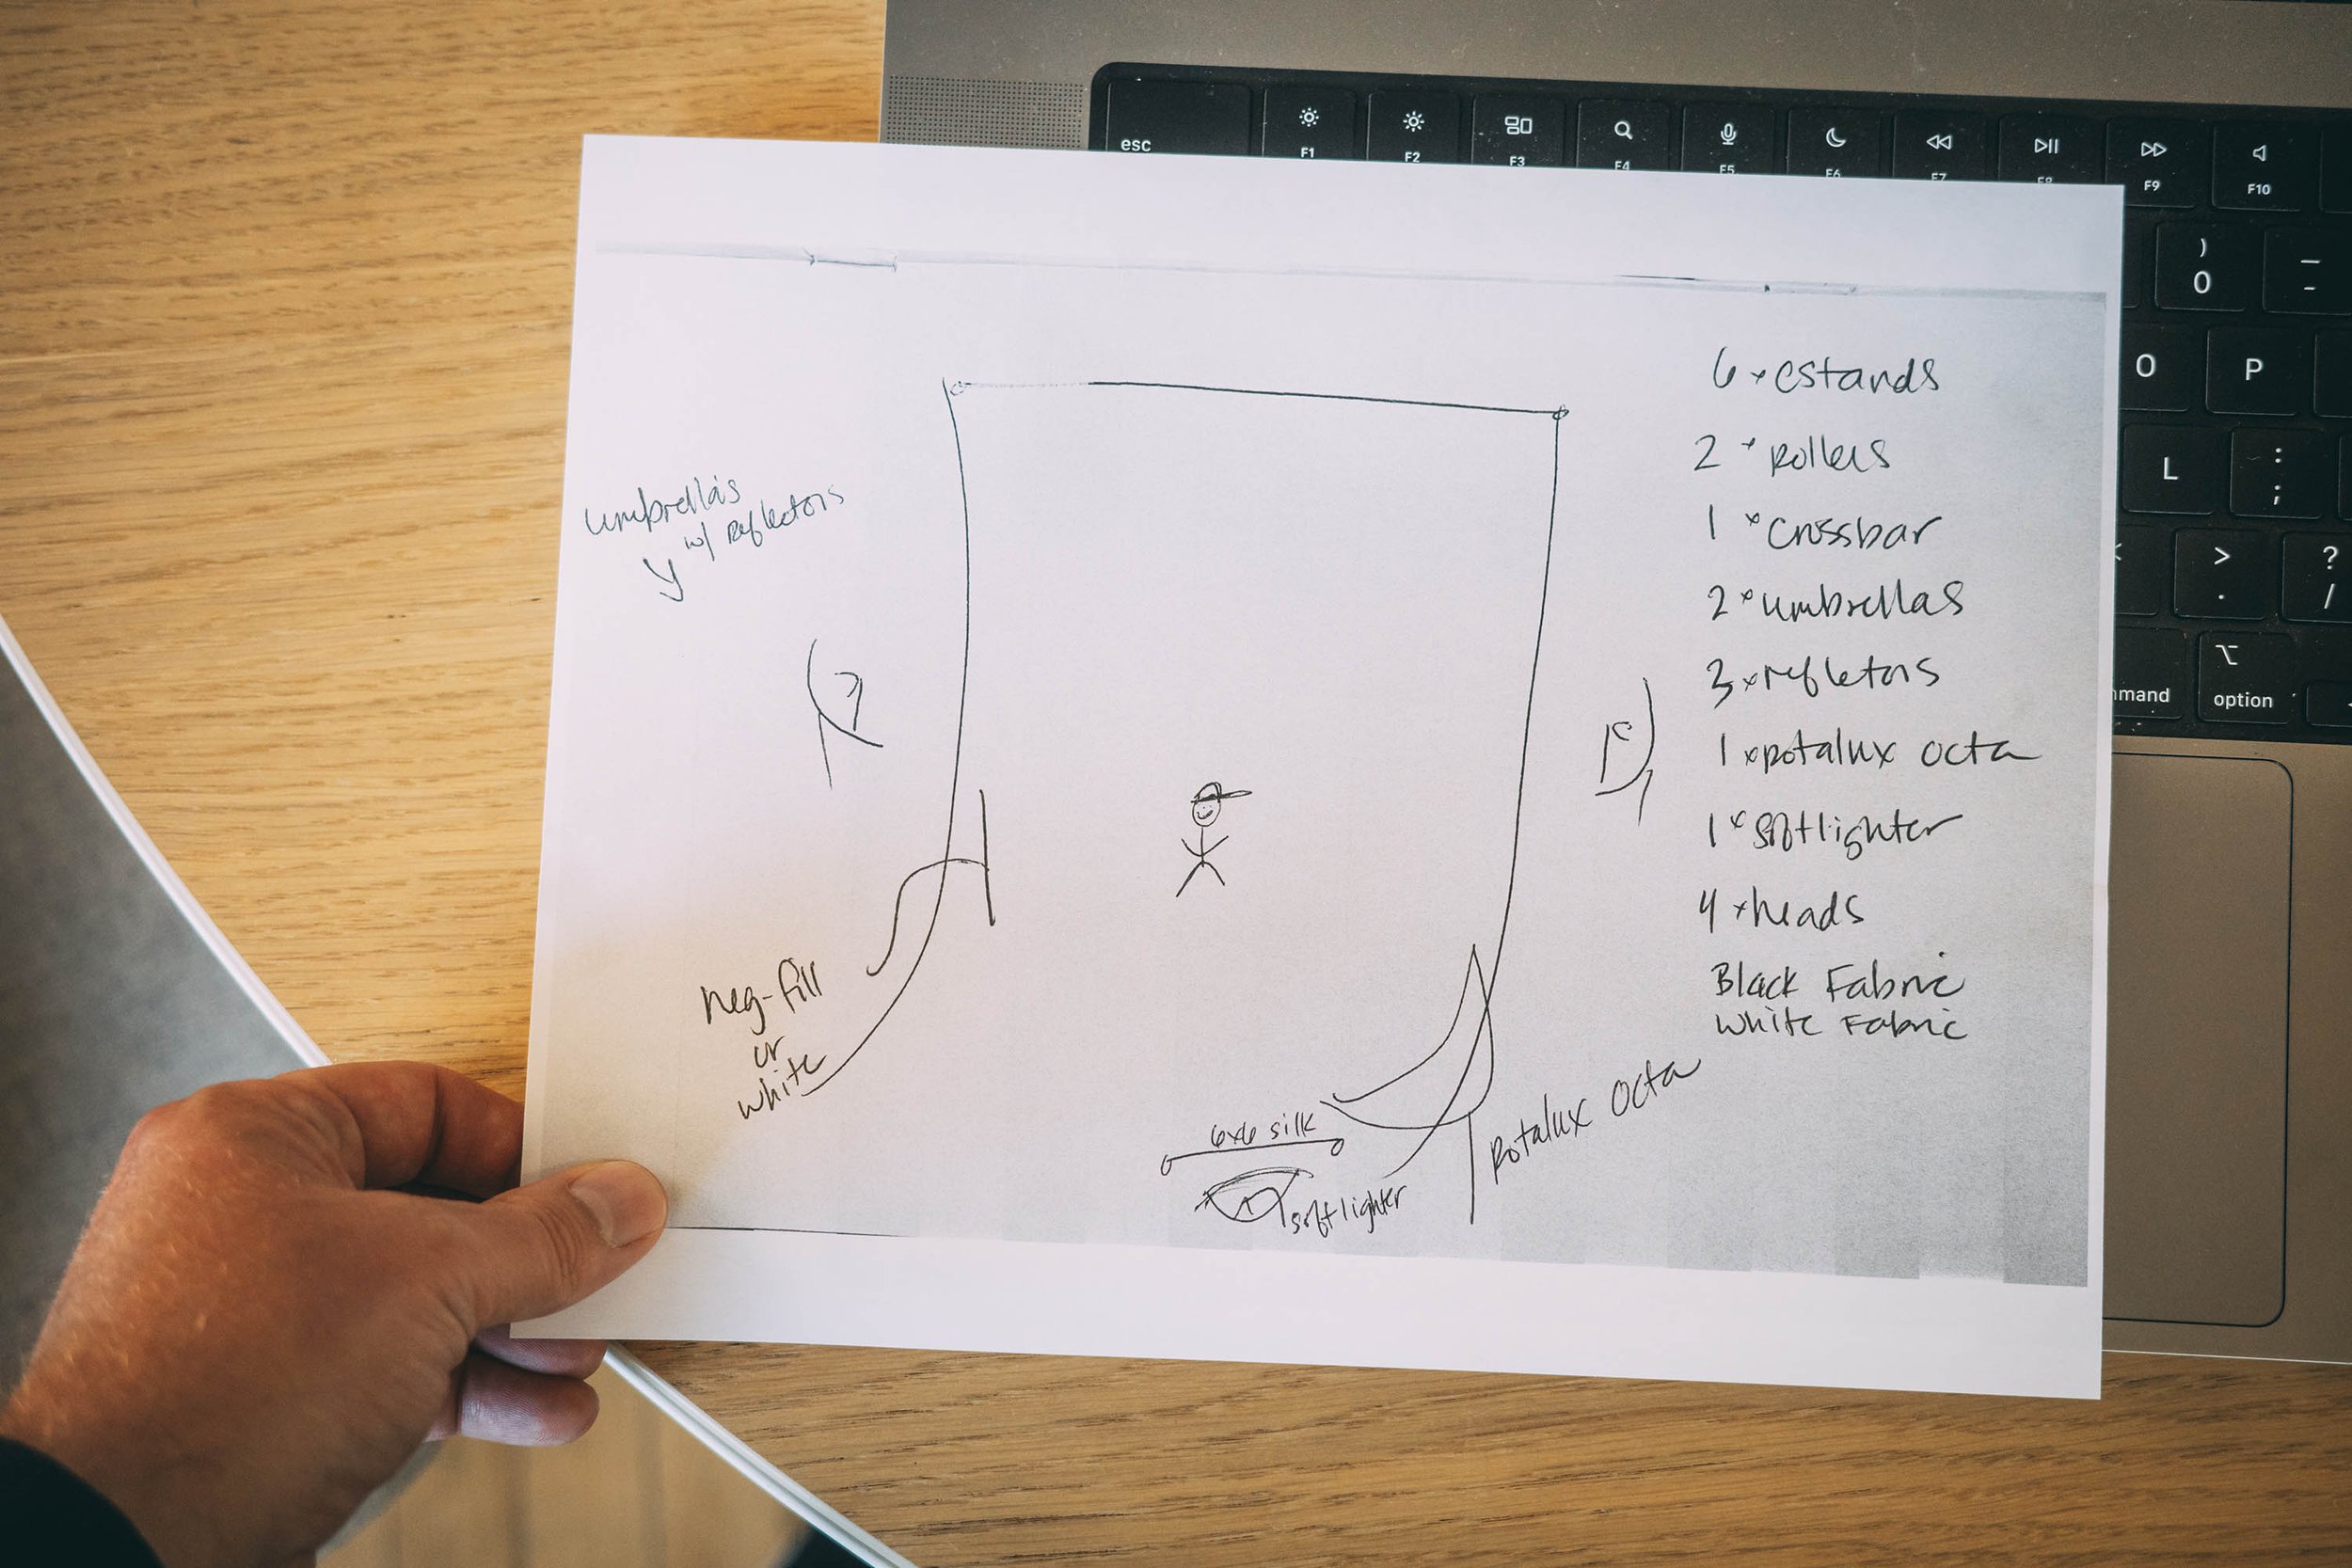 esc
F1
F2
F3
F4
F5
F6
F7
F8
F9
F10
)
0
—
-
O
P
L
:
;
>
.
?
/
mmand
option
umbrellas
w/ Reflectors
neg-fill
or
white
6x6 silk
softlighter
Rotalux Octa
6 x cstands
2 x Rollers
1 x Crossbar
2 x umbrellas
3 x refletors
1 x Rotalux Octa
1 x Softlighter
4 x heads
Black Fabric
White Fabric